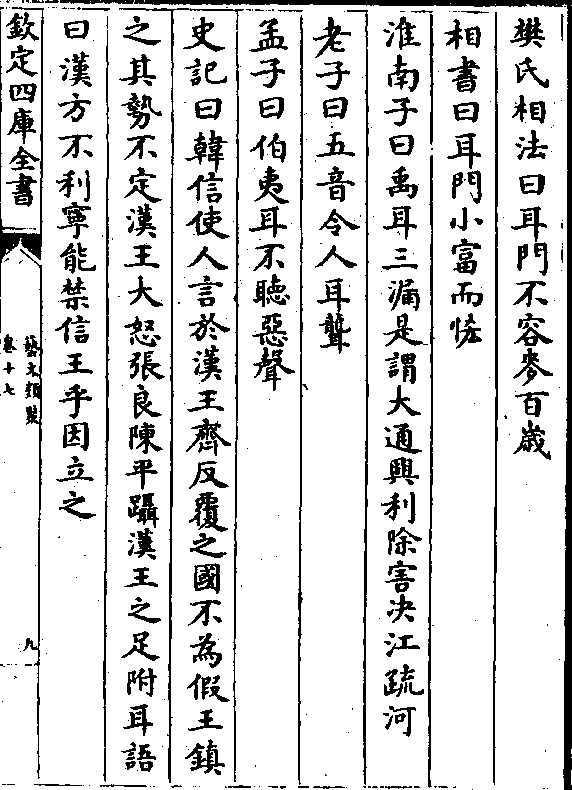 樊氏相法曰耳門不容麥百歲
相書曰耳門小富而恡
淮南子曰禹耳三漏是謂大通興利除害決江疏河
老子曰五音令人耳聾
孟子曰伯夷耳不聽惡聲
史記曰韓信使人言於漢王齊反覆之國不為假王鎮
之其勢不定漢王大怒張良陳平躡漢王之足附耳語
曰漢方不利寧能禁信王乎因立之
欽定四庫全書
藝文類聚
卷十七
九